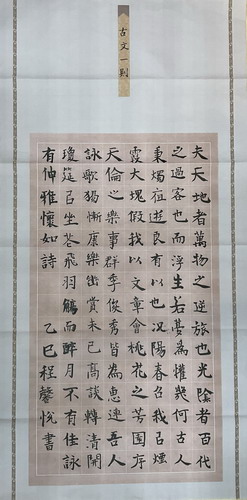 古文一則
夫天地者萬物之逆旅也光陰者百代
之過客也而浮生若夢為懽幾何古人
秉燭夜遊良有以也況陽春召我以煙
景大塊假我以文章會桃花之芳園序
天倫之樂事群季俊秀皆為惠連吾人
詠歌獨慚康樂幽賞未已高談轉清開
瓊筵以坐花飛羽觴而醉月不有佳詠
何伸雅懷如詩 乙巳程馨悅書